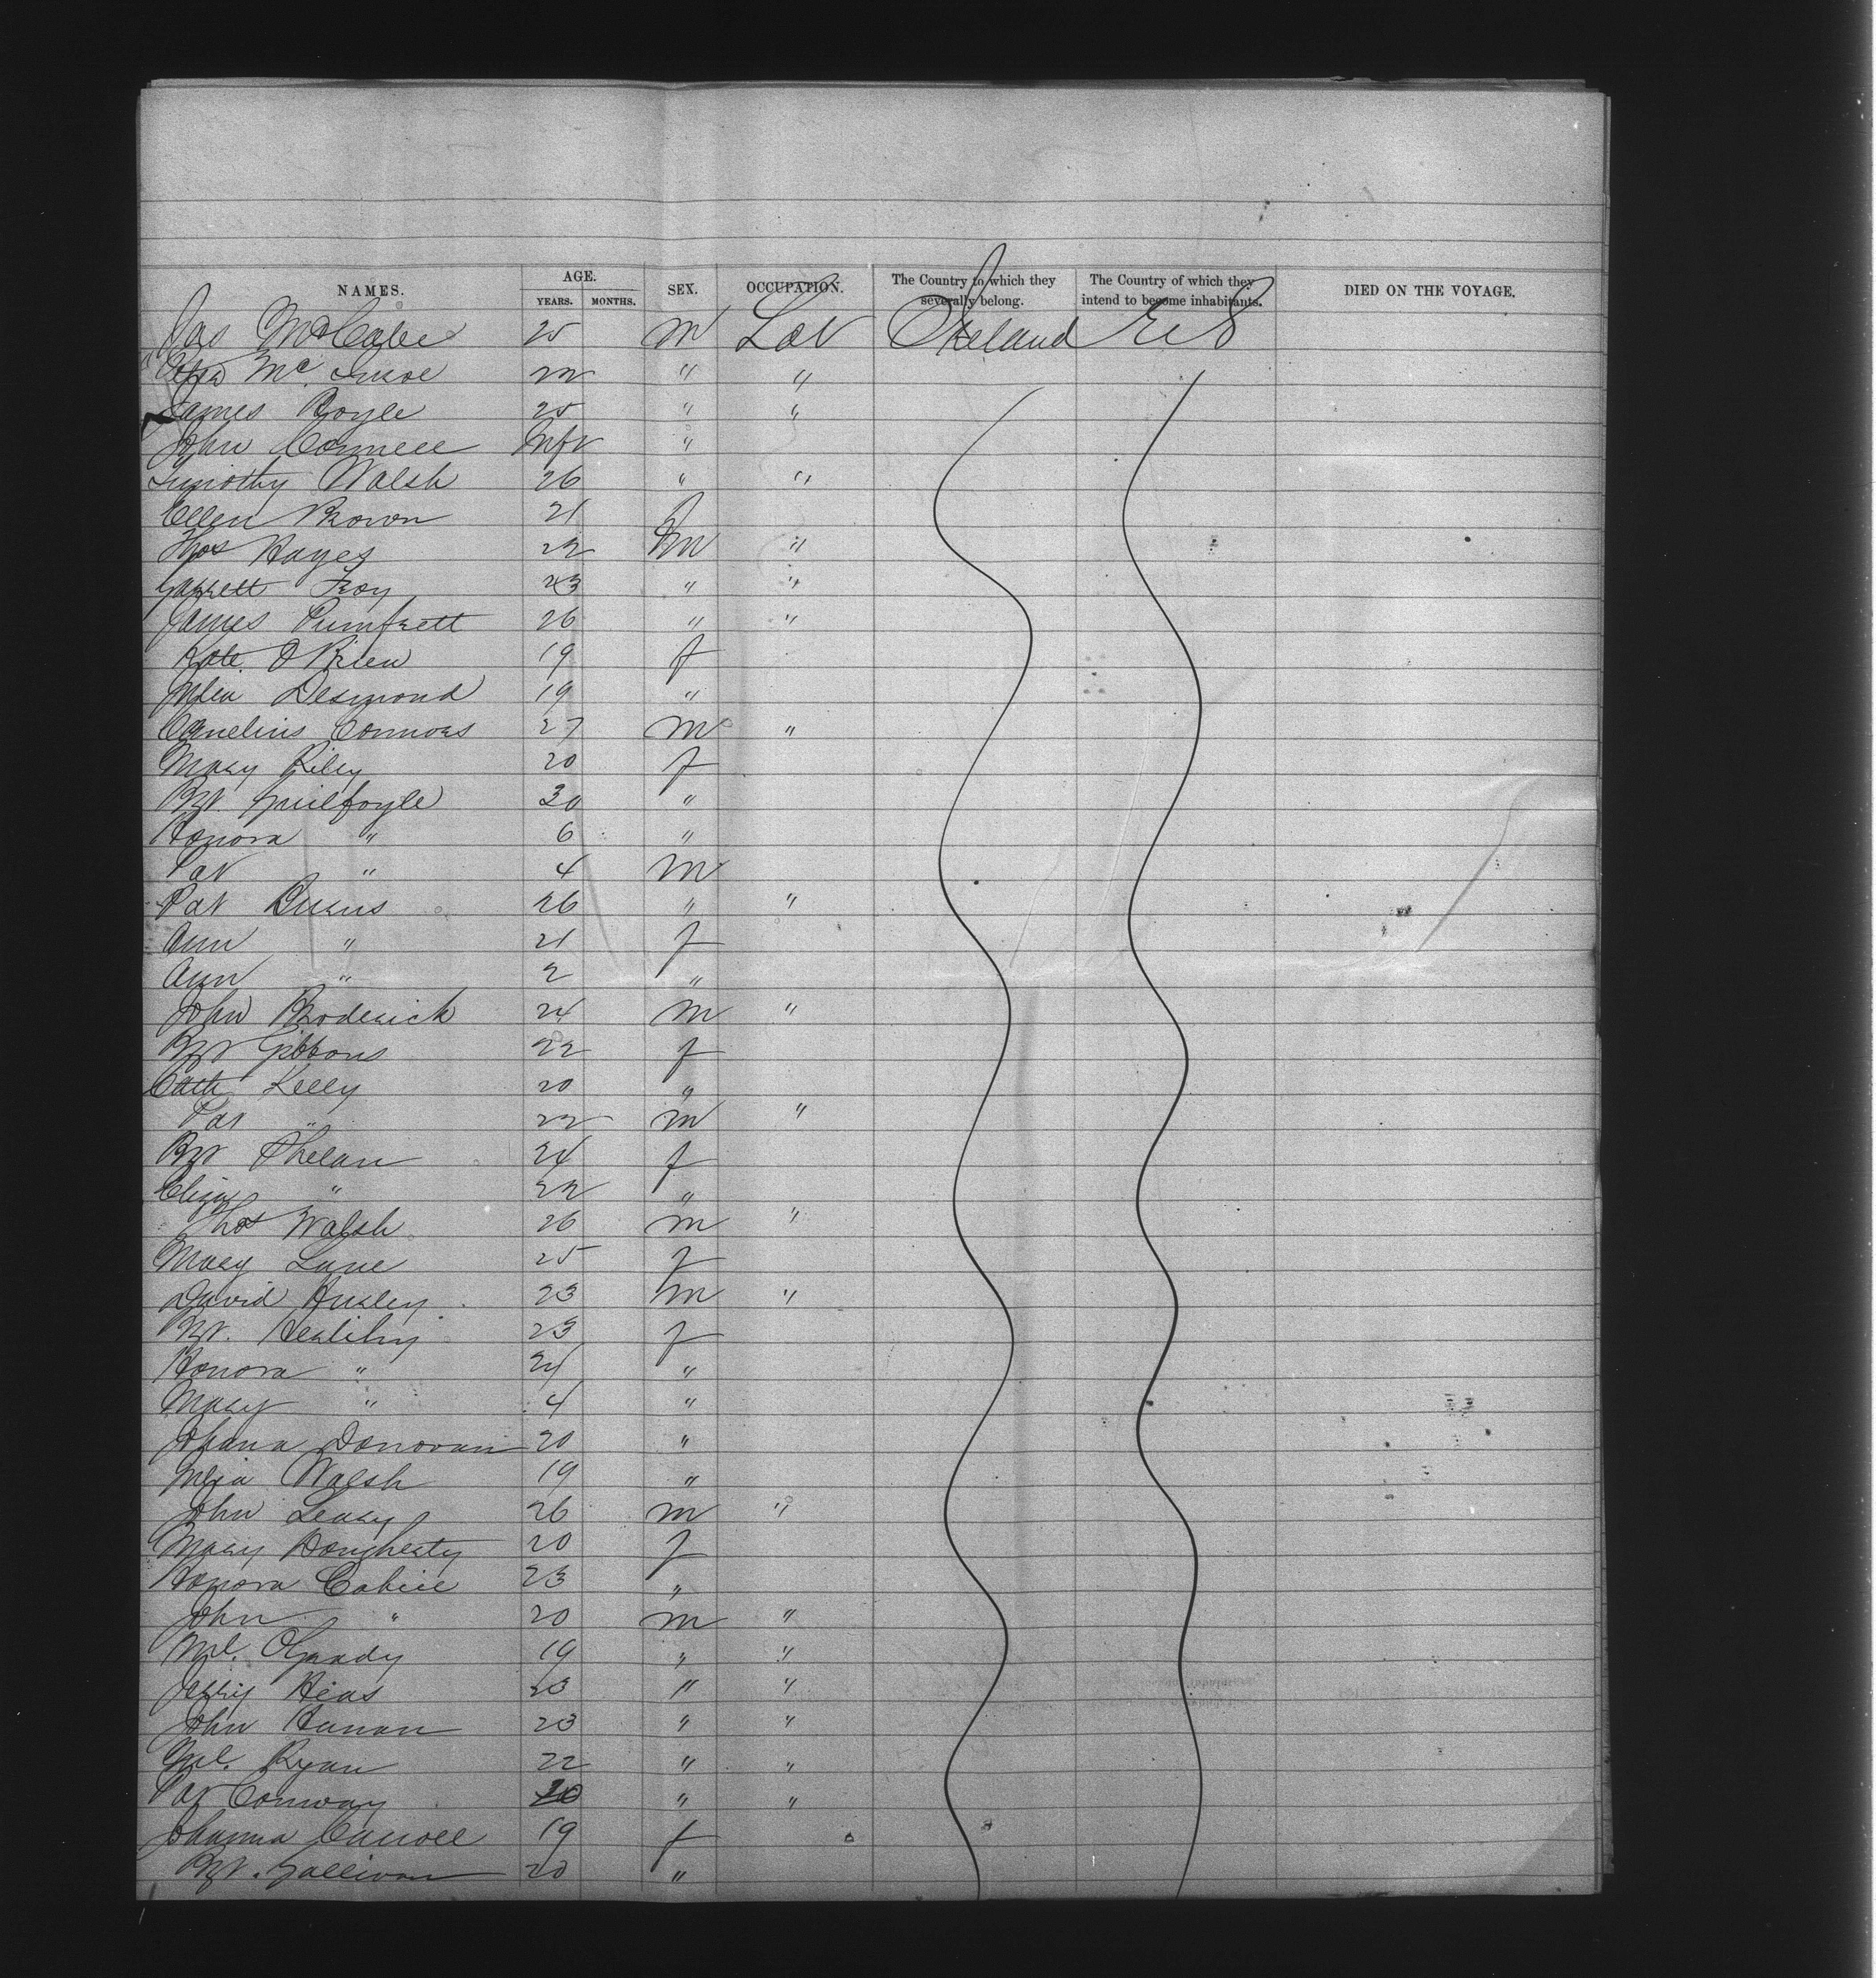 NAMES. AGE. YEARS. MONTHS. SEX. OCCUPATION. The Country to which they severally belong. The Country of which they intend to become inhabitants. DIED ON THE VOYAGE.
Jas McCabe 25 m Lab Ireland U S
Mc 22 " "
James Boyle 25 " "
John Connell Inft "
Timothy Walsh 26 " "
Ellen Brown 21 f
Thos Hayes 22 m "
Garrett Troy 23 " "
James Pumfrett 26 " "
Kate O'Brien 19 f
Julia Desmond 19 "
Cornelius Connors 27 m "
Mary Riley 20 f
Bgt. Guilfoyle 30 "
Honora " 6 "
Pat " 4 m
Pat Burns 26 " "
Ann " 21 f
Ann " 2 "
John Broderick 24 m "
Bgt Gibbons 22 f
Cath Kelly 20 "
Pat " 22 m "
Bgt Phelan 24 f
Eliza " 22 "
Thos Walsh 26 m "
Mary Lane 25 f
David Hurley 23 m "
Bgt. 23 f
Honora " 21 "
Mary " 4 "
Johana Donovan 20 "
Julia Walsh 19 "
John Leary 26 m "
Mary Dougherty 20 f
Honora Cahill 23 "
John " 20 m "
Ml. OGrady 19 " "
Jerry 23 " "
John Hanan 23 " "
Ml. Ryan 22 " "
Pat Conway 20 " "
Johanna Carroll 19 f
Bgt. Sullivan 20 "